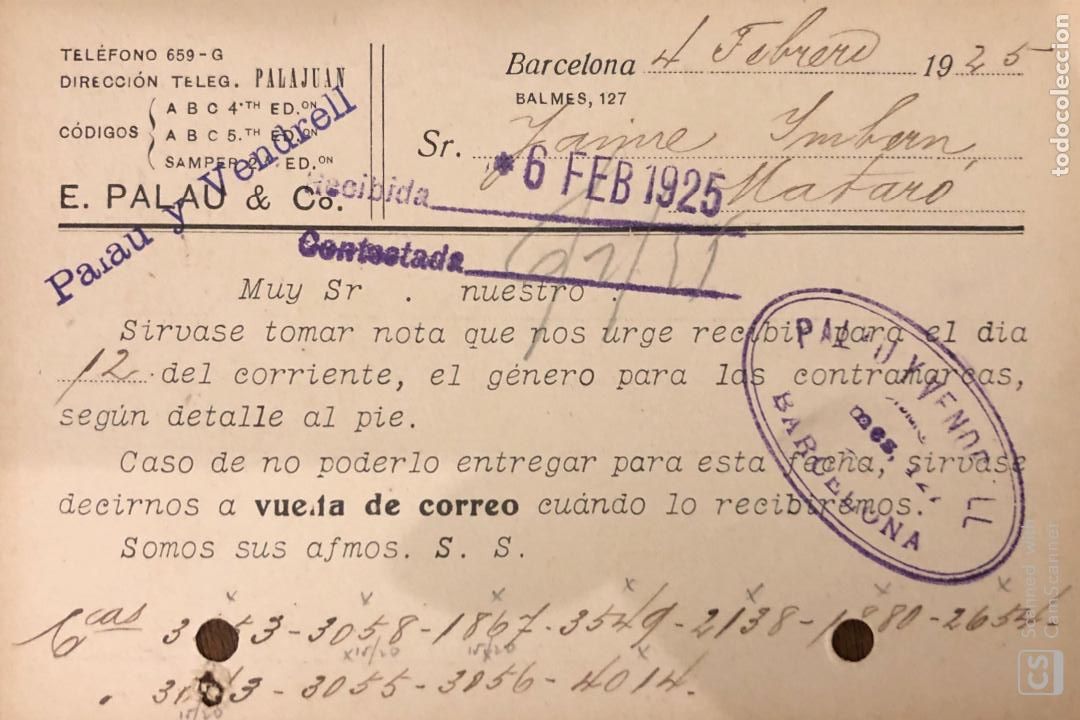 TELÉFONO 659-G
DIRECCIÓN TELEG. PALAJUAN
CÓDIGOS
A B C 4.TH ED.ON
A B C 5.TH ED.ON
SAMPER 2.ª ED.ON
E. PALAU & Co.
Palau y Vendrell
Barcelona 4 Febrero 1925
BALMES, 127
Sr. Jaime Imbern
Mataró
Recibida *6 FEB 1925
Contestada
Muy Sr . nuestro :
Sirvase tomar nota que nos urge recibir para el dia
12 del corriente, el género para las contramarcas,
según detalle al pie.
Caso de no poderlo entregar para esta fecha, sirvase
decirnos a vuelta de correo cuándo lo recibiremos.
Somos sus afmos. S. S.
PALAU Y VENDRELL
BARCELONA
Ccas 3 53-3058-1867-3549-2138-1 80-2654-
3 3-3055-3056-4014.
15/20
15/20
15/20
todocoleccion
Scanned with
CamScanner
CS